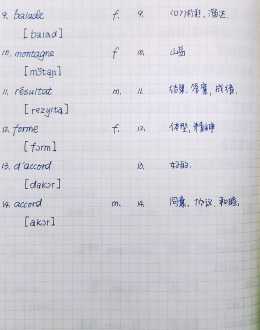 9. balade f. 9. (口)闲逛, 溜达.
[balad]
10. montagne f 10. 山岳
[mɔ̃taɲ]
11. résultat m. 11. 结果. 答案, 成绩.
[rezylta]
12. forme f. 12. 体型, 精神
[fɔrm]
13. d'accord 13. 好的.
[dakɔr]
14. accord m. 14. 同意, 协议. 和睦.
[akɔr]